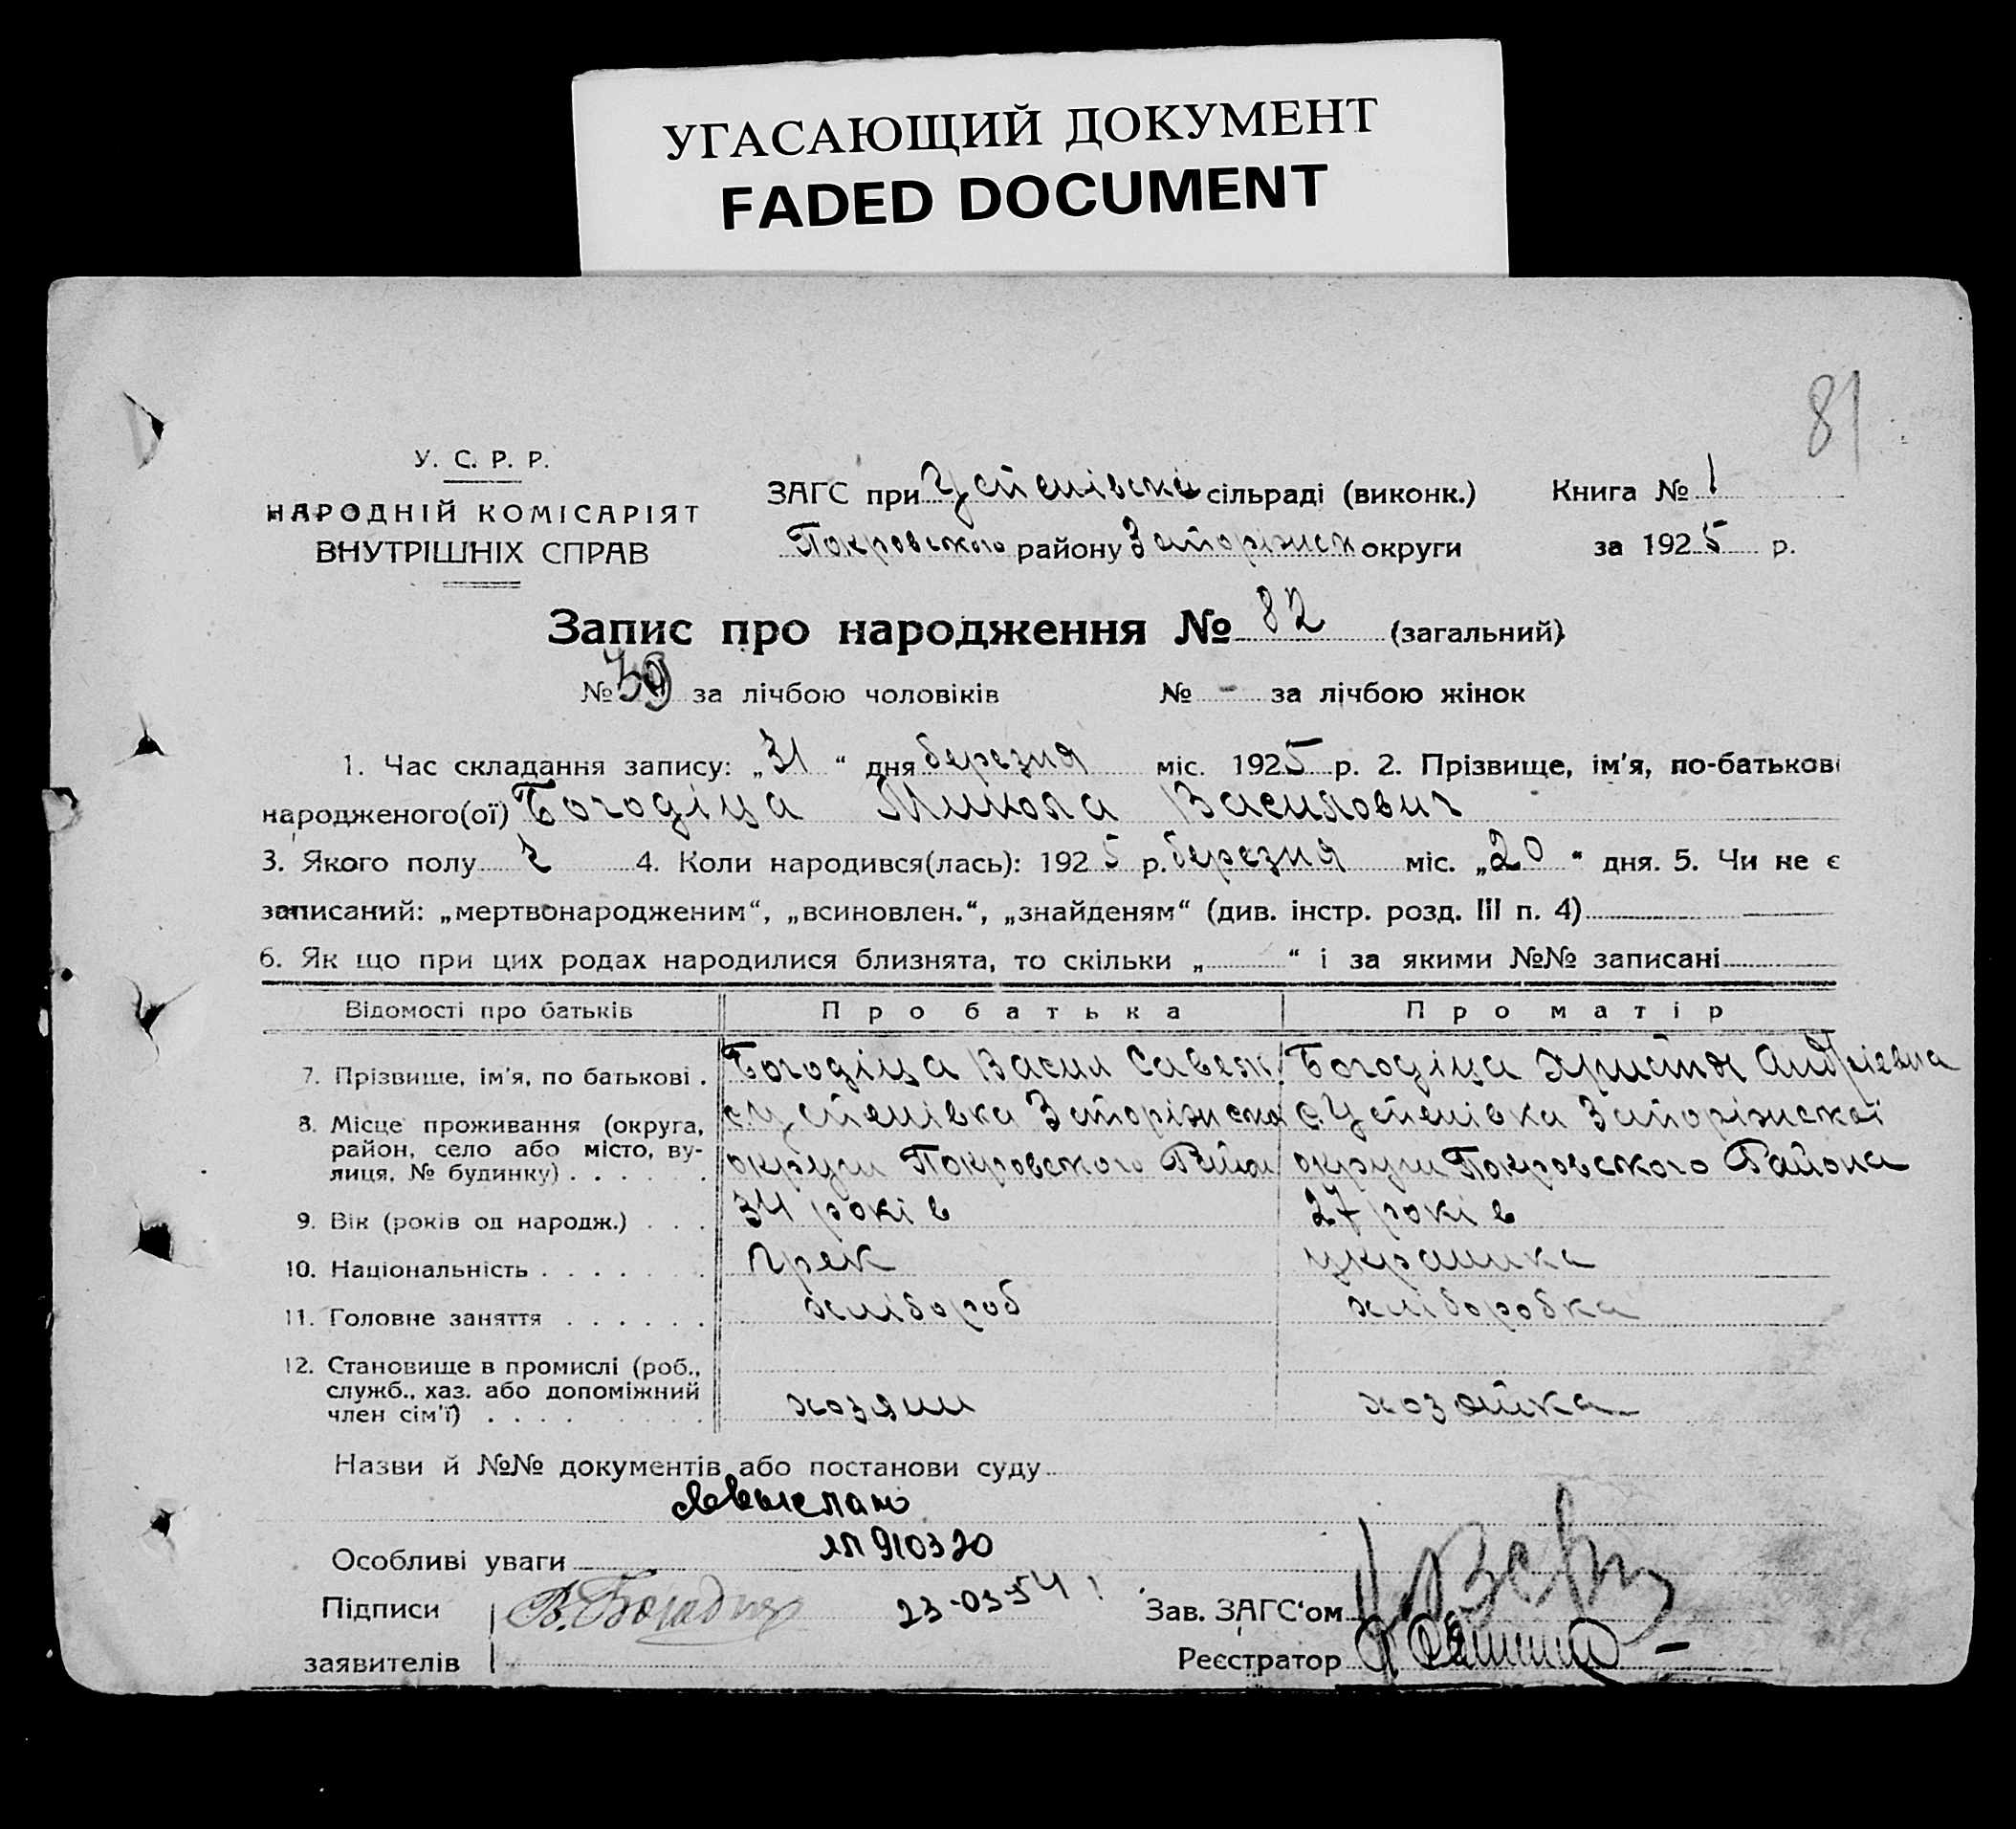 УГАСАЮЩИЙ ДОКУМЕНТ
FADED DOCUMENT
81
У. С. Р. Р.
НАРОДНІЙ КОМІСАРІЯТ
ВНУТРІШНІХ СПРАВ
ЗАГС при Успенівскі сільраді (виконк.) Книга № 1
Покровського району Запоріжск округи за 1925 р.
Запис про народження № 82 (загальний)
№ 39 за лічбою чоловіків № - за лічбою жінок
1. Час складання запису: „31“ дня березня міс. 1925 р. 2. Прізвище, ім'я, по-батькові
народженого(ої) Богодіца Микола Василович
3. Якого полу ч 4. Коли народився(лась): 1925 р. березня міс. „20“ дня. 5. Чи не є
записаний: „мертвонародженим“, „всиновлен.“, „знайденям“ (див. інстр. розд. III п. 4)
6. Як що при цих родах народилися близнята, то скільки „ “ і за якими №№ записані
Відомості про батьків Про батька Про матір
7. Прізвище, ім'я, по батькові . Богодіца Васил Савеж. Богодіца Христя Андріевна
8. Місце проживання (округа, район, село або місто, вулиця, № будинку) . . . . . .
с. Успенівка Запоріжска с. Успенівка Запоріжскої
округи Покровського Район округи Покровського Района
9. Вік (років од народж.) . . . 34 років 27 років
10. Національність . . . . . . . грек украинка
11. Головне заняття . . . . . . хлібороб хліборобка
12. Становище в промислі (роб.,
служб., хаз. або допоміжний
член сім'ї) . . . . хозяин хозяйка
Назви й №№ документів або постанови суду
910320
Особливі уваги
23-03-54
Підписи В. Богодица Зав. ЗАГС'ом
заявителів Реєстратор